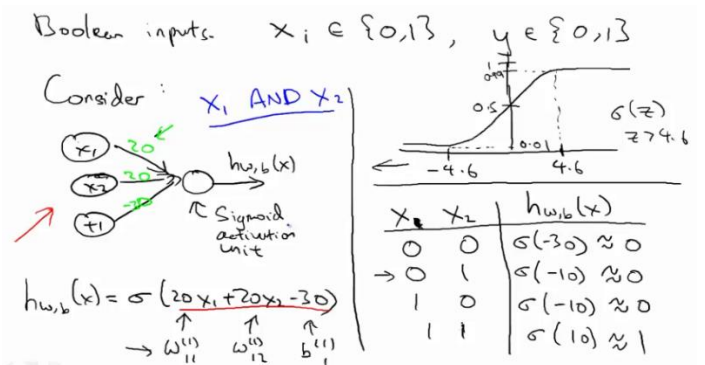 Boolean inputs. xᵢ ∈ {0,1}, y ∈ {0,1}
Consider : x₁ AND x₂
x₁ 20
x₂ 20
+1 -30
h_{w,b}(x)
Sigmoid
activation
unit
h_{w,b}(x) = σ(20x₁+20x₂-30)
→ w₁₁⁽¹⁾ w₁₂⁽¹⁾ b₁⁽¹⁾
1
0.99
0.5
0.01
-4.6 4.6
σ(z)
z>4.6
x₁ x₂ h_{w,b}(x)
0 0 σ(-30) ≈ 0
→ 0 1 σ(-10) ≈ 0
1 0 σ(-10) ≈ 0
1 1 σ(10) ≈ 1